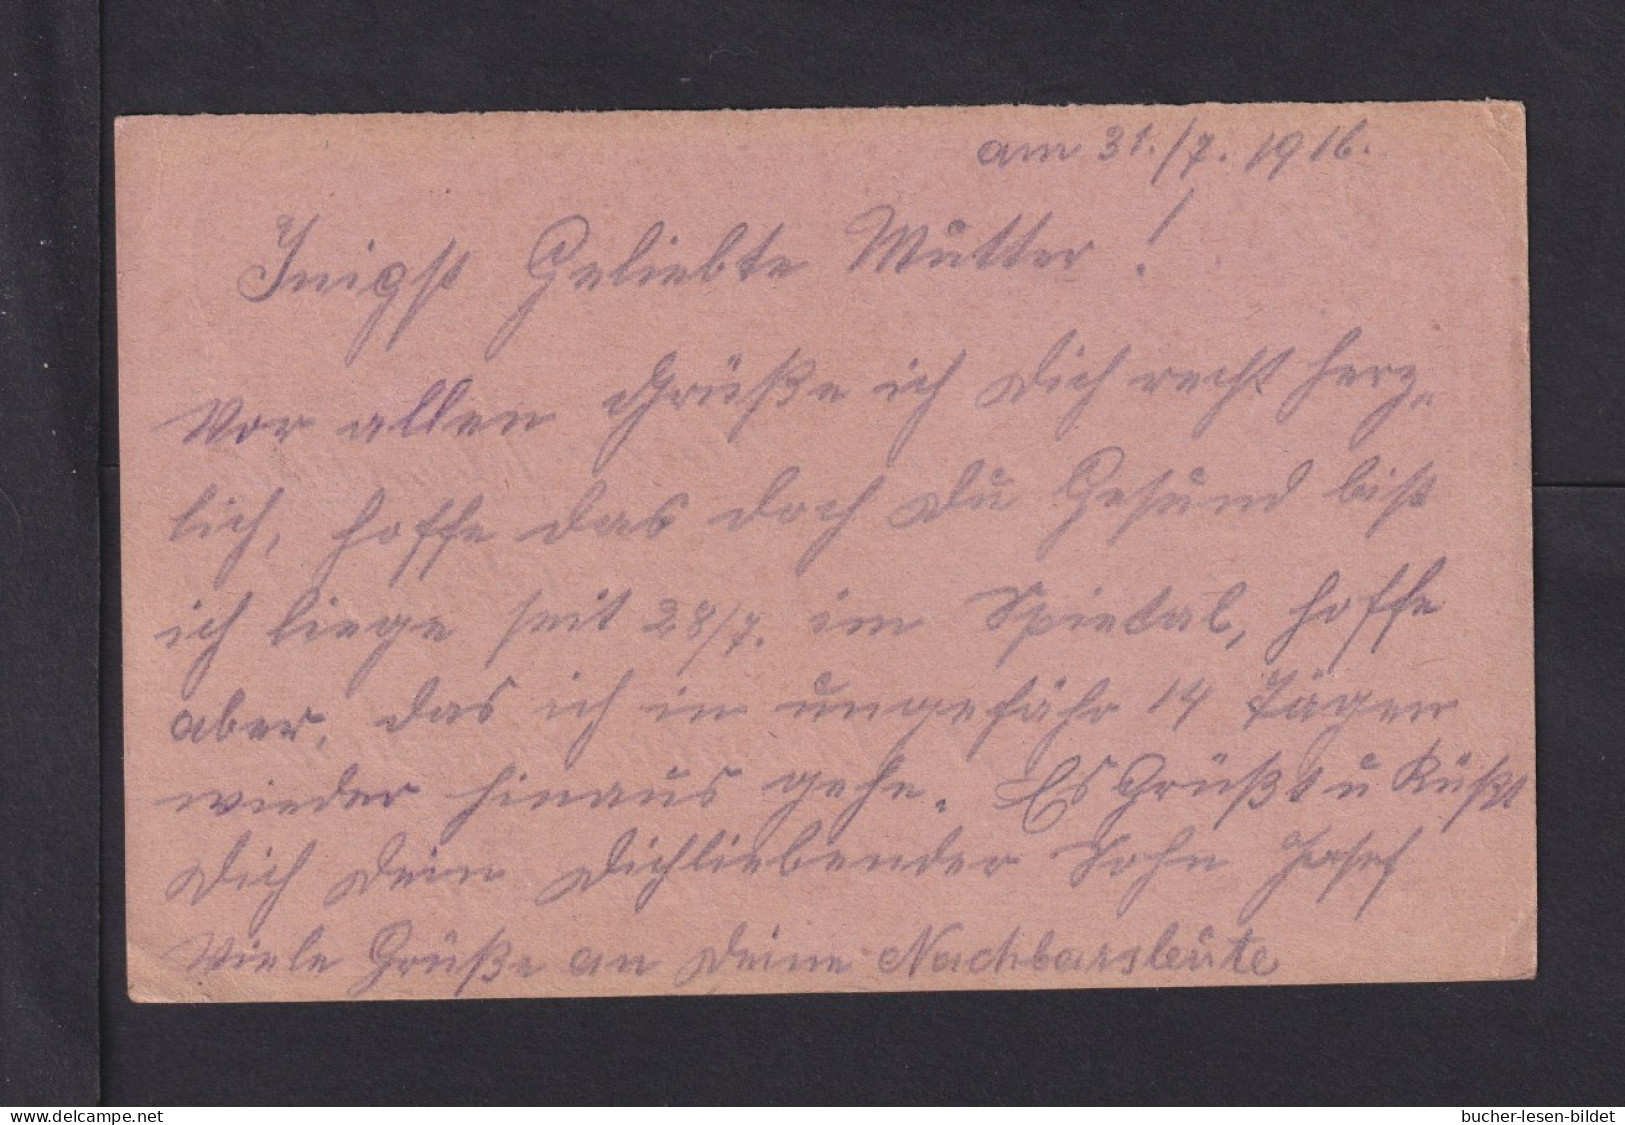 am 31./7. 1916.
Inigst Geliebte Mutter!
Vor allen Grüße ich Dich recht herz-
lich, hoffe das doch Du Gesund bist
ich liege seit 28/7. im Spietal, hoffe
aber, das ich in ungefähr 14 Tägen
wieder hinaus gehe. Es Grüßt u Küßt
Dich Dein Dichliebender Sohn Josef
Viele Grüße an Deine Nachbarsleute
bucher-lesen-bildet
www.delcampe.net